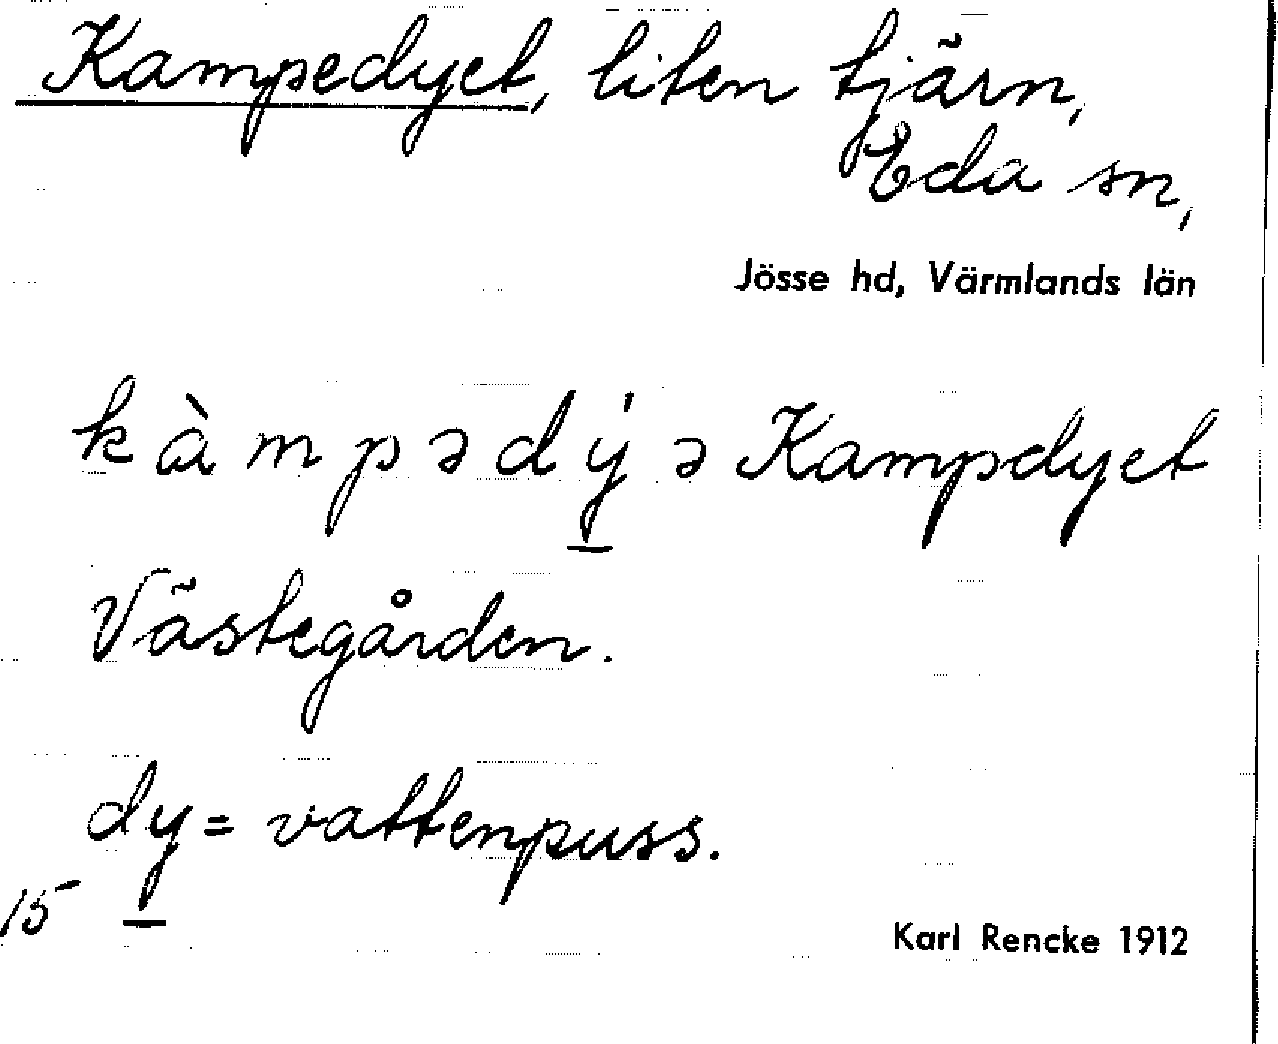 Kampedyet, liten tjärn,
Eda sn,
Jösse hd, Värmlands län
kàmpədý̱ə Kampdyet
Västegården.
dy̱ = vattenpuss.
15
Karl Rencke 1912